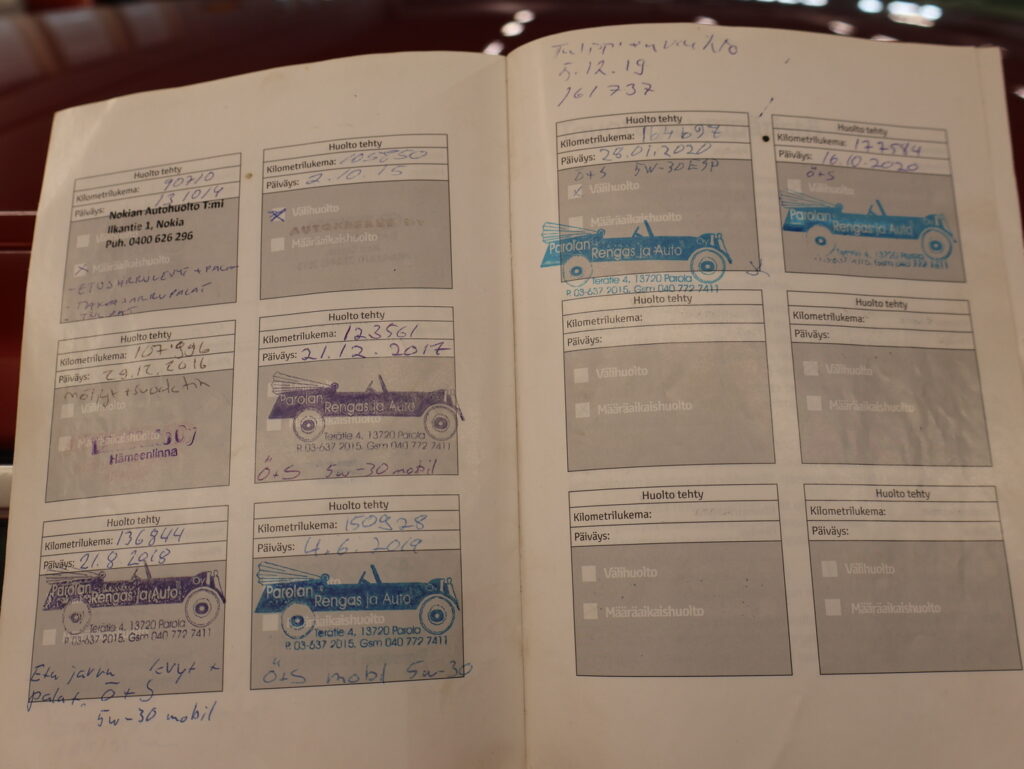 Huolto tehty
Kilometrilukema: 90710
Päiväys: 131014
Nokian Autohuolto T:mi
Ilkantie 1, Nokia
Puh. 0400 626 296
Määräaikaishuolto
- ETUJARRULEVYT + PALAT
- TAKAJARRUPALAT
Huolto tehty
Kilometrilukema: 105850
Päiväys: 2.10.15
Välihuolto
Määräaikaishuolto
Huolto tehty
Kilometrilukema: 107996
Päiväys:
Välihuolto
Määräaikaishuolto
Hämeenlinna
Huolto tehty
Kilometrilukema: 123561
Päiväys: 21.12.2017
Parolan
Rengas ja Auto
Terätie 4, 13720 Parola
P. 03-637 2015, Gsm 040 772 7411
Ö+S 5w-30 mobil
Huolto tehty
Kilometrilukema: 136844
Päiväys: 21.8 2018
Parolan
Rengas ja Auto
Terätie 4, 13720 Parola
P. 03-637 2015, Gsm 040 772 7411
Etu jarru levyt +
palat. Ö+S
5w-30 mobil
Huolto tehty
Kilometrilukema: 150928
Päiväys: 4.6.2019
Parolan
Rengas ja Auto
Terätie 4, 13720 Parola
P. 03-637 2015, Gsm 040 772 7411
Ö+S mobl 5w-30
5.12.19
161737
Huolto tehty
Kilometrilukema: 164697
Päiväys: 28.01.2020
Ö+S 5W-30 ESP
Välihuolto
Määräaikaishuolto
Parolan
Rengas ja Auto
Terätie 4, 13720 Parola
P. 03-637 2015, Gsm 040 772 7411
Huolto tehty
Kilometrilukema: 177584
Päiväys: 16.10.2020
Ö+S
Välihuolto
Parolan
Rengas ja Auto
Huolto tehty
Kilometrilukema:
Päiväys:
Välihuolto
Määräaikaishuolto
Huolto tehty
Kilometrilukema:
Päiväys:
Välihuolto
Määräaikaishuolto
Huolto tehty
Kilometrilukema:
Päiväys:
Välihuolto
Määräaikaishuolto
Huolto tehty
Kilometrilukema:
Päiväys:
Välihuolto
Määräaikaishuolto